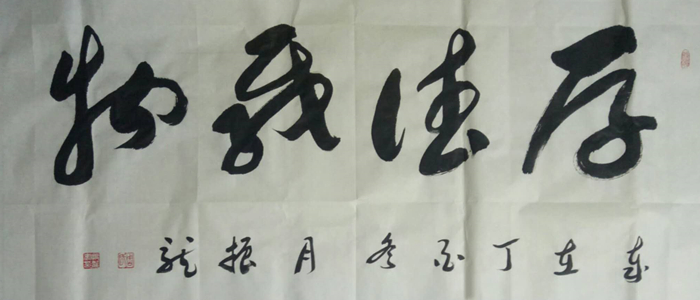 厚德载物
岁在丁酉冬月振龙